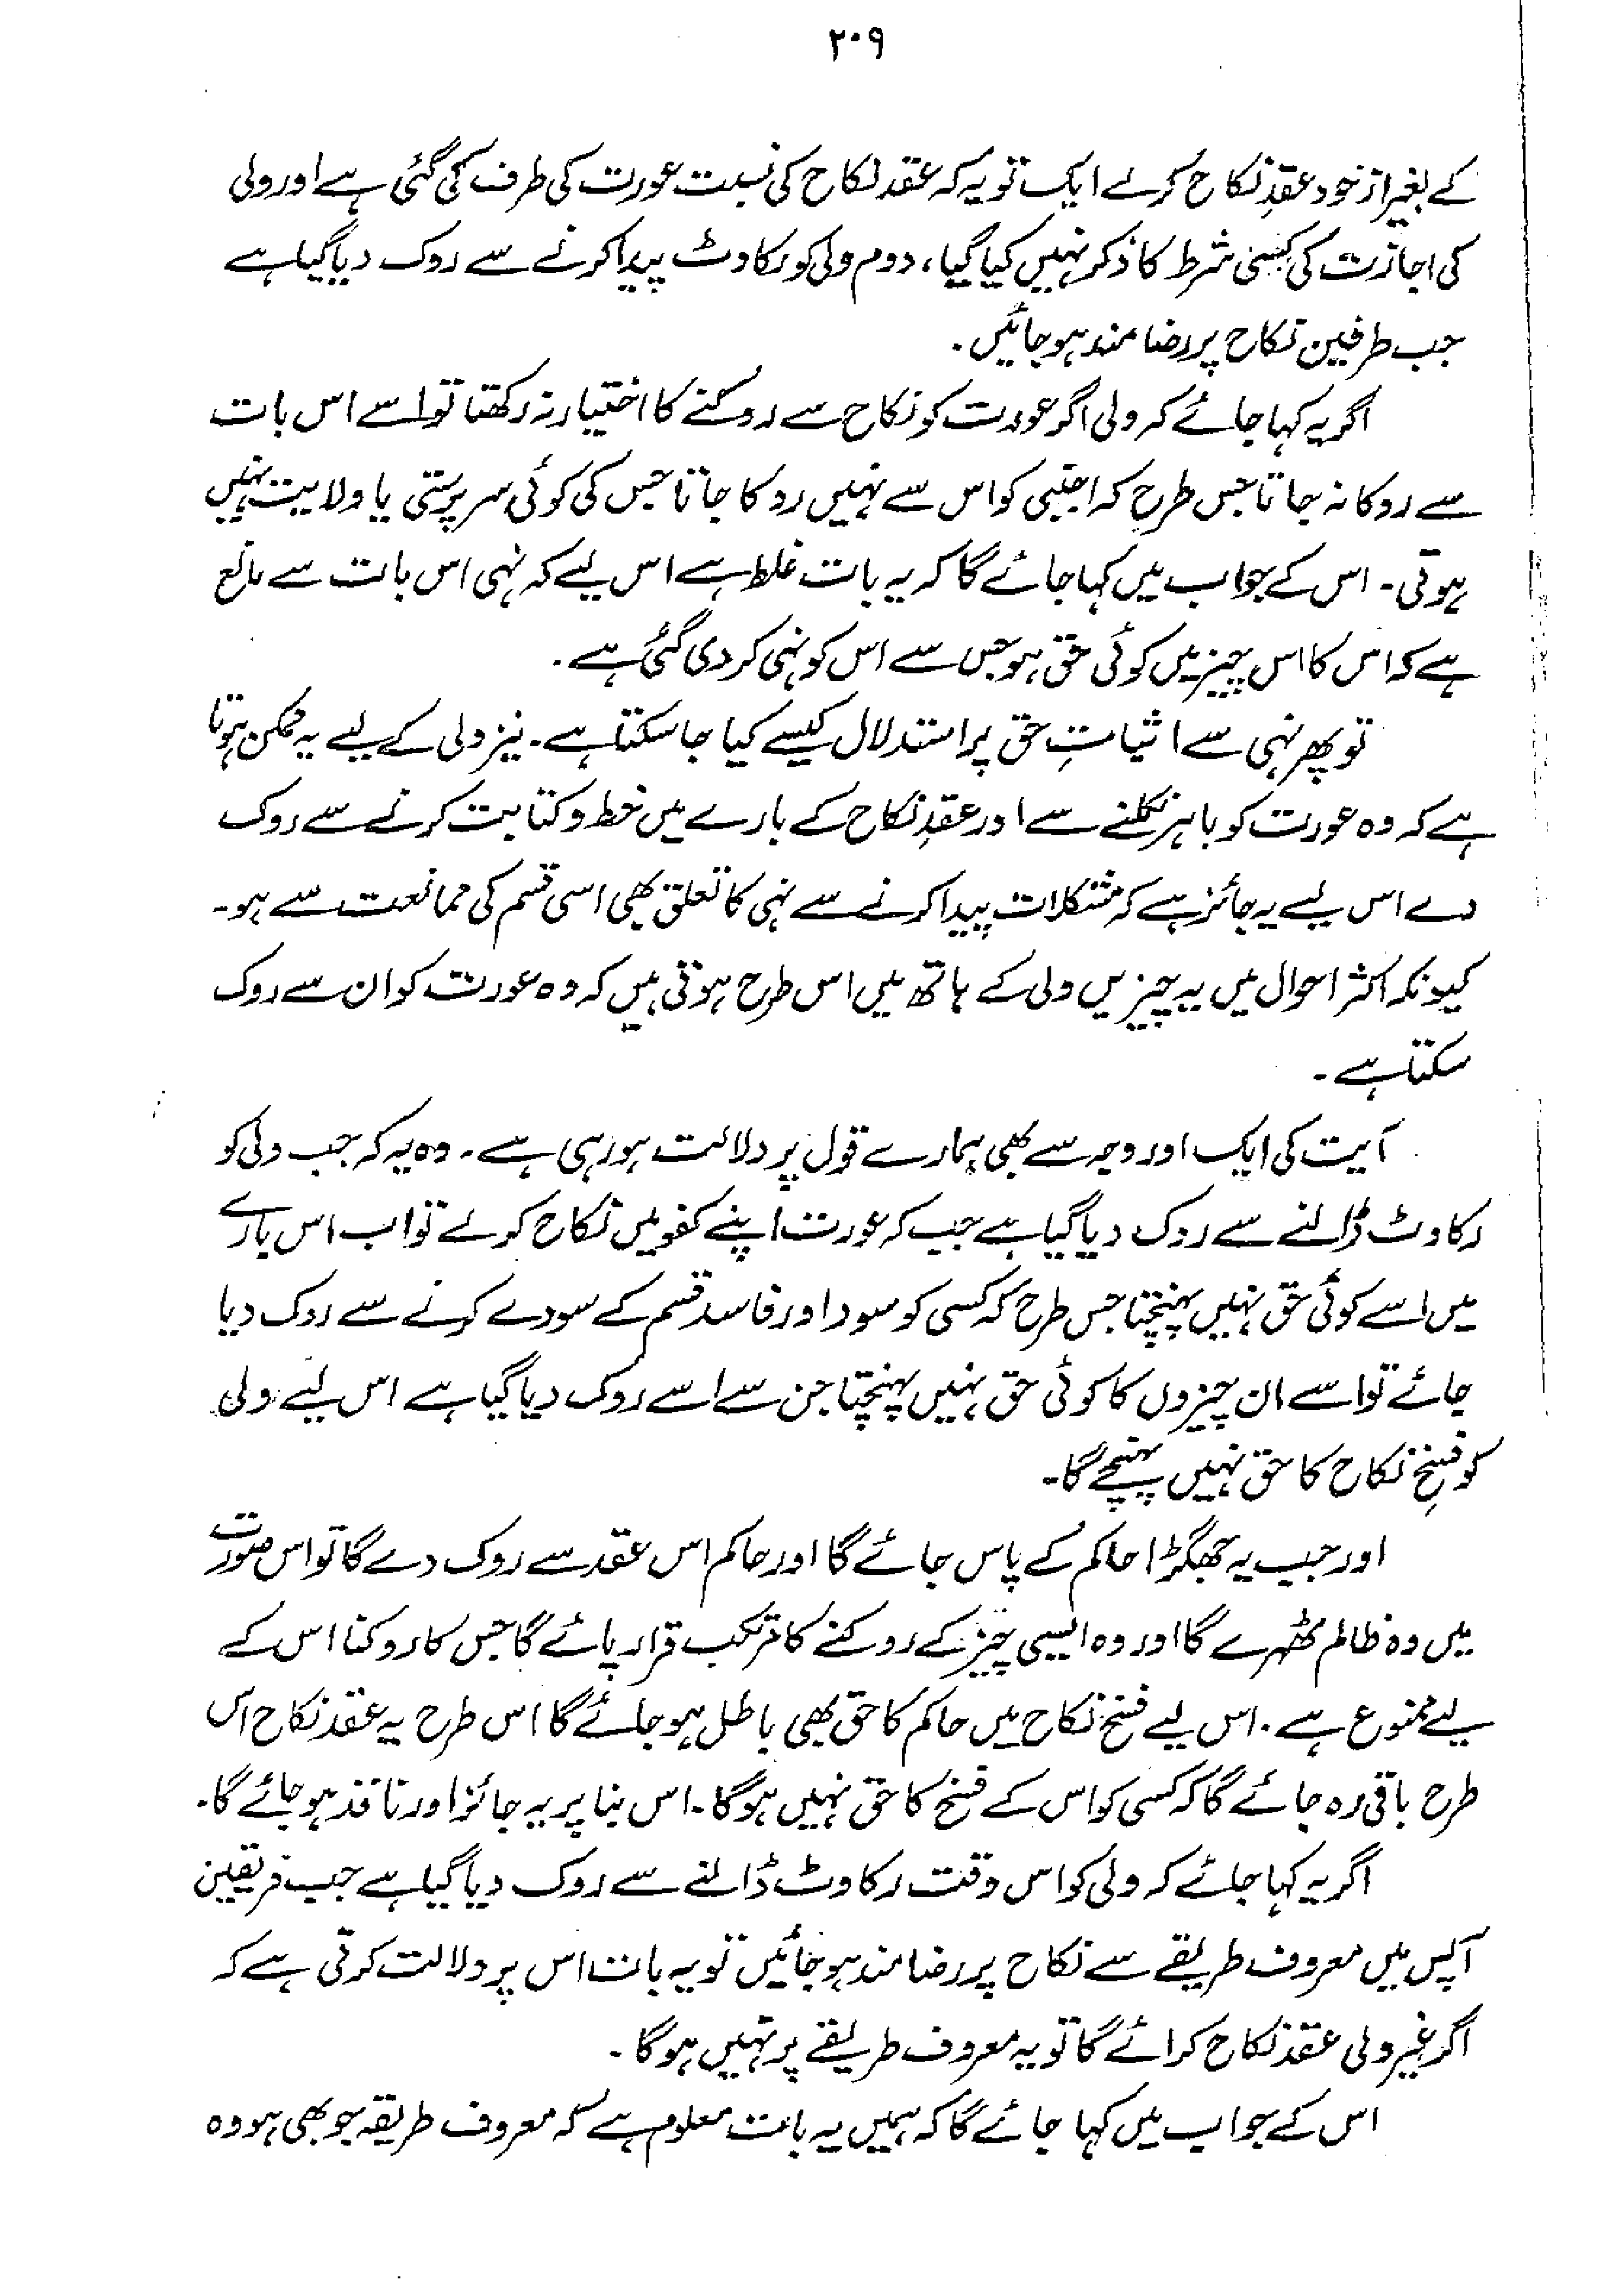 ۲۰۹
کے بغیر از خود عقدِ نکاح کرلے ایک تو یہ کہ عقد نکاح کی نسبت عورت کی طرف کی گئی ہے اور ولی
کی اجازت کی کسی شرط کا ذکر نہیں کیا گیا، دوم ولی کو رکاوٹ پیدا کرنے سے روک دیا گیا ہے
جب طرفین نکاح پر رضامند ہو جائیں۔
اگر یہ کہا جائے کہ ولی اگر عورت کو نکاح سے روکنے کا اختیار نہ رکھتا تو اسے اس بات
سے روکا نہ جاتا جس طرح کہ اجنبی کو اس سے نہیں روکا جاتا جس کی کوئی سرپرستی یا ولایت نہیں
ہوتی۔ اس کے جواب میں کہا جائے گا کہ یہ بات غلط ہے اس لیے کہ نہی اس بات سے مانع
ہے کہ اس کا اس چیز میں کوئی حق ہو جس سے اس کو نہی کر دی گئی ہے۔
تو پھر نہی سے اثباتِ حق پر استدلال کیسے کیا جا سکتا ہے۔ نیز ولی کے لیے یہ ممکن ہوتا
ہے کہ وہ عورت کو باہر نکلنے سے اور عقدِ نکاح کے بارے میں خط و کتابت کرنے سے روک
دے اس لیے یہ جائز ہے کہ مشکلات پیدا کرنے سے نہی کا تعلق بھی اسی قسم کی ممانعت سے ہو۔
کیونکہ اکثر احوال میں یہ چیزیں ولی کے ہاتھ میں اس طرح ہوتی ہیں کہ وہ عورت کو ان سے روک
سکتا ہے۔
آیت کی ایک اور وجہ سے بھی ہمارے قول پر دلالت ہو رہی ہے۔ وہ یہ کہ جب ولی کو
رکاوٹ ڈالنے سے روک دیا گیا ہے جب کہ عورت اپنے کفو میں نکاح کرلے تو اب اس بارے
میں اسے کوئی حق نہیں پہنچتا جس طرح کہ کسی کو سود اور فاسد قسم کے سودے کرنے سے روک دیا
جائے تو اسے ان چیزوں کا کوئی حق نہیں پہنچتا جن سے اسے روک دیا گیا ہے اس لیے ولی
کو فسخِ نکاح کا حق نہیں پہنچے گا۔
اور جب یہ جھگڑا حاکم کے پاس جائے گا اور حاکم اس عقد سے روک دے گا تو اس صورت
میں وہ ظالم ٹھہرے گا اور وہ ایسی چیز کے روکنے کا مرتکب قرار پائے گا جس کا روکنا اس کے
لیے ممنوع ہے۔ اس لیے فسخ نکاح میں حاکم کا حق بھی باطل ہو جائے گا اس طرح یہ عقد نکاح اس
طرح باقی رہ جائے گا کہ کسی کو اس کے فسخ کا حق نہیں ہوگا۔ اس بنا پر یہ جائز اور نافذ ہو جائے گا۔
اگر یہ کہا جائے کہ ولی کو اس وقت رکاوٹ ڈالنے سے روک دیا گیا ہے جب فریقین
آپس میں معروف طریقے سے نکاح پر رضامند ہو جائیں تو یہ بات اس پر دلالت کرتی ہے کہ
اگر غیر ولی عقد نکاح کرائے گا تو یہ معروف طریقے پر نہیں ہوگا۔
اس کے جواب میں کہا جائے گا کہ ہمیں یہ بات معلوم ہے کہ معروف طریقہ جو بھی ہو وہ